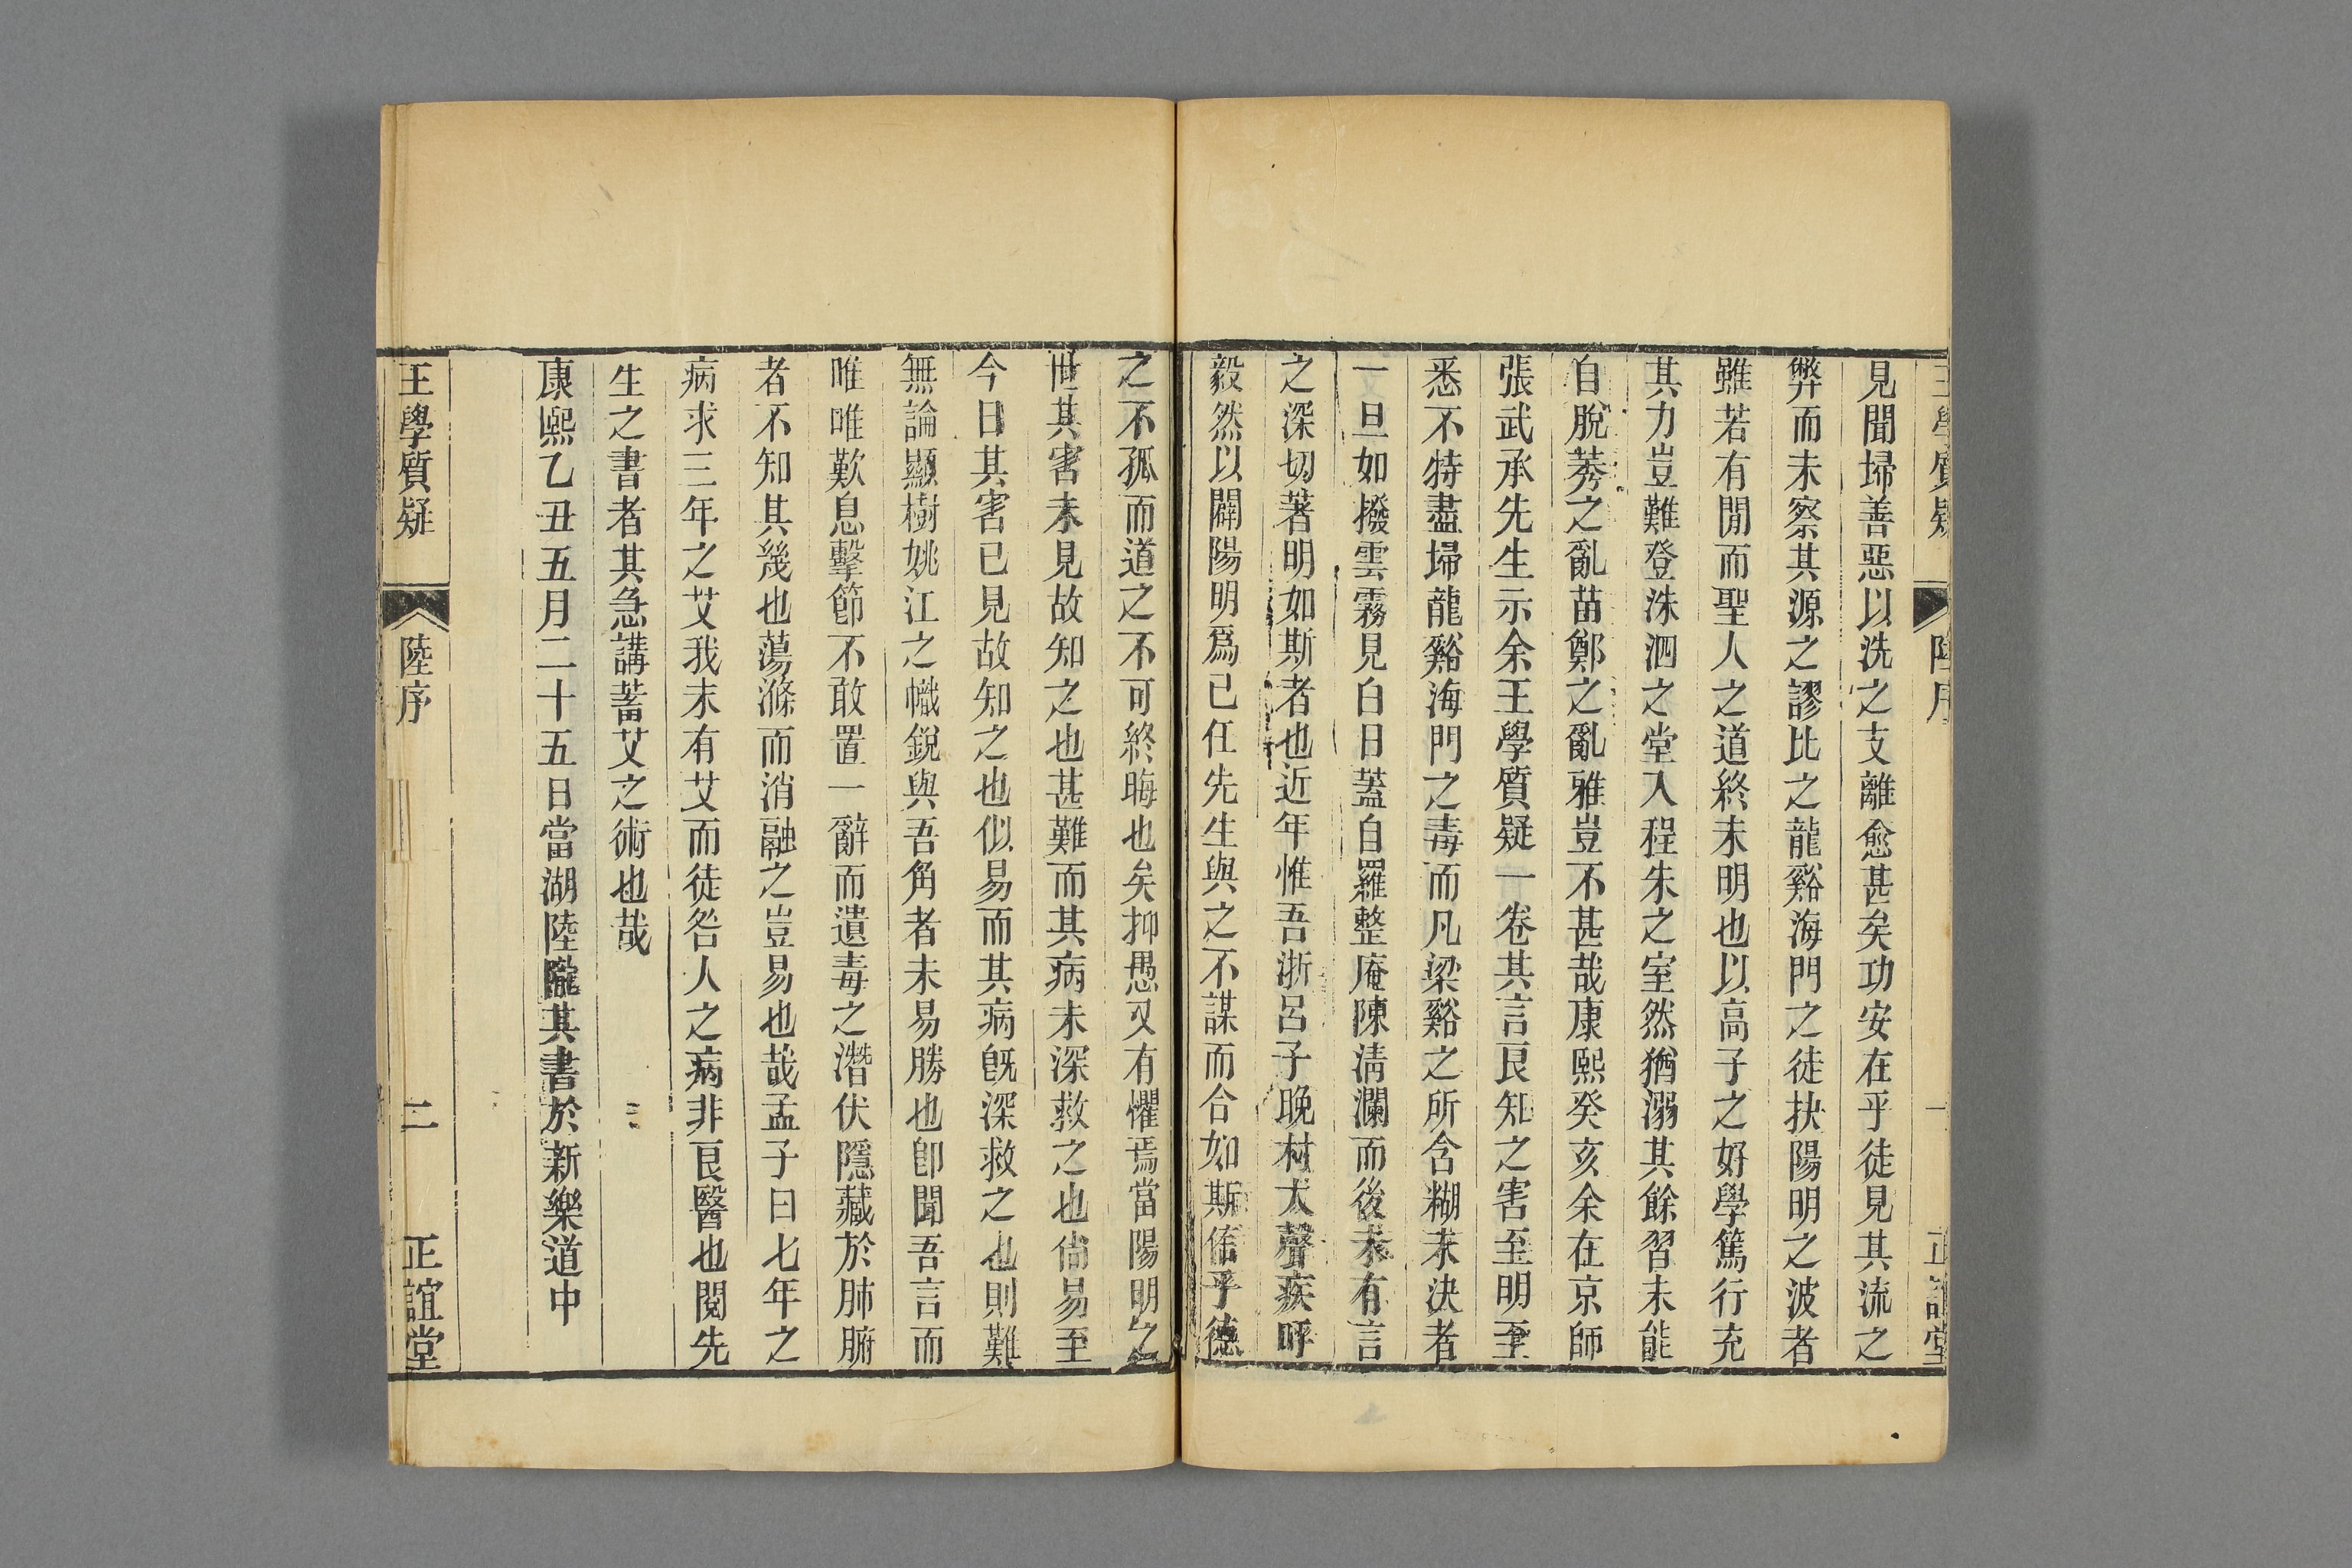 王學質疑 陸序 一 正誼堂
見聞埽善惡以洗之支離愈甚矣功安在乎徒見其流之
弊而未察其源之謬比之龍谿海門之徒抉陽明之波者
雖若有閒而聖人之道終未明也以高子之好學篤行充
其力豈難登洙泗之堂入程朱之室然猶溺其餘習未能
自脫莠之亂苗鄭之亂雅豈不甚哉康熙癸亥余在京師
張武承先生示余王學質疑一卷其言良知之害至明至
悉不特盡埽龍谿海門之毒而凡梁谿之所含糊未決者
一旦如撥雲霧見白日蓋自羅整庵陳清瀾而後未有言
之深切著明如斯者也近年惟吾浙呂子晚村大聲疾呼
毅然以闢陽明爲己任先生與之不謀而合如斯信乎德
之不孤而道之不可終晦也矣抑愚又有懼焉當陽明之
世其害未見故知之也甚難而其病未深救之也尙易至
今日其害已見故知之也似易而其病旣深救之也則難
無論顯樹姚江之幟銳與吾角者未易勝也卽聞吾言而
唯唯歎息擊節不敢置一辭而遺毒之潛伏隱藏於肺腑
者不知其幾也蕩滌而消融之豈易也哉孟子曰七年之
病求三年之艾我未有艾而徒咎人之病非良醫也閱先
生之書者其急講蓄艾之術也哉
康熙乙丑五月二十五日當湖陸隴其書於新樂道中
王學質疑 陸序 二 正誼堂